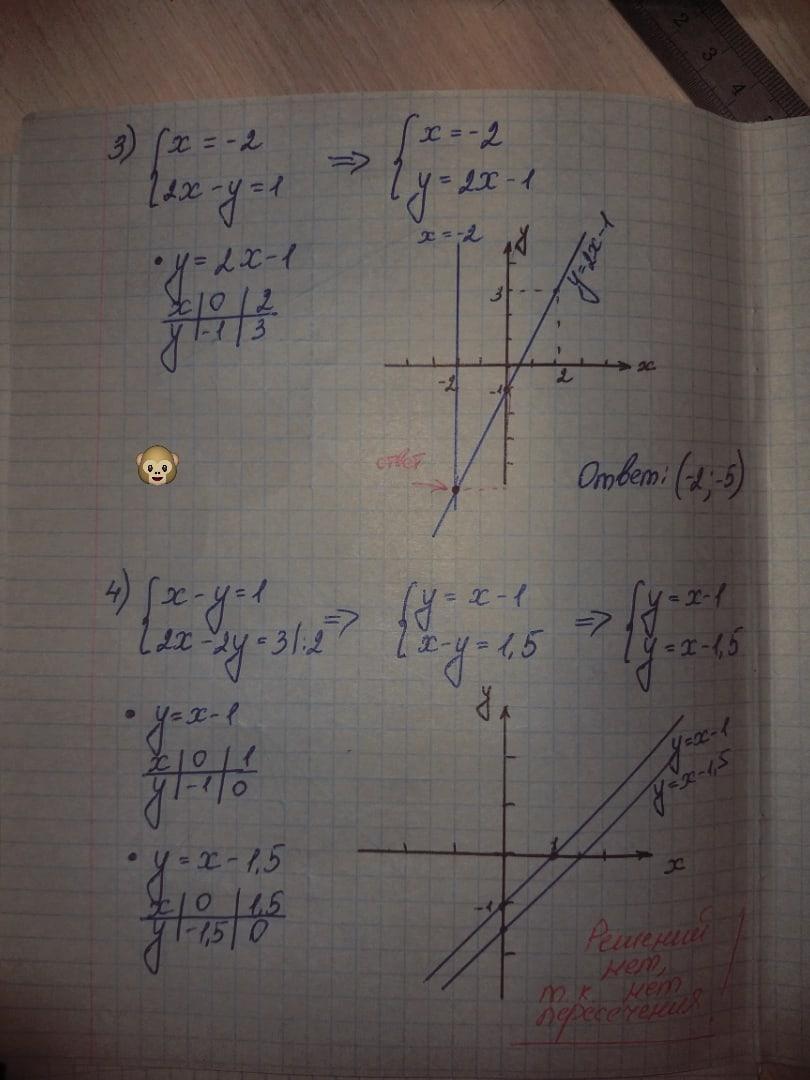 2 3 4
3) { x = -2 ⇒ { x = -2
2x - y = 1 y = 2x - 1
• y = 2x - 1
x | 0 | 2
y | -1 | 3
x = -2
y
y = 2x - 1
3
-2
-1
2
x
ответ
Ответ: (-2; -5)
4) { x - y = 1 ⇒ { y = x - 1 ⇒ { y = x - 1
2x - 2y = 3 |:2 x - y = 1,5 y = x - 1,5
• y = x - 1
x | 0 | 1
y | -1 | 0
• y = x - 1,5
x | 0 | 1,5
y | -1,5 | 0
y
y = x - 1
y = x - 1,5
1
x
-1
Решений
нет,
т. к. нет
пересечения.